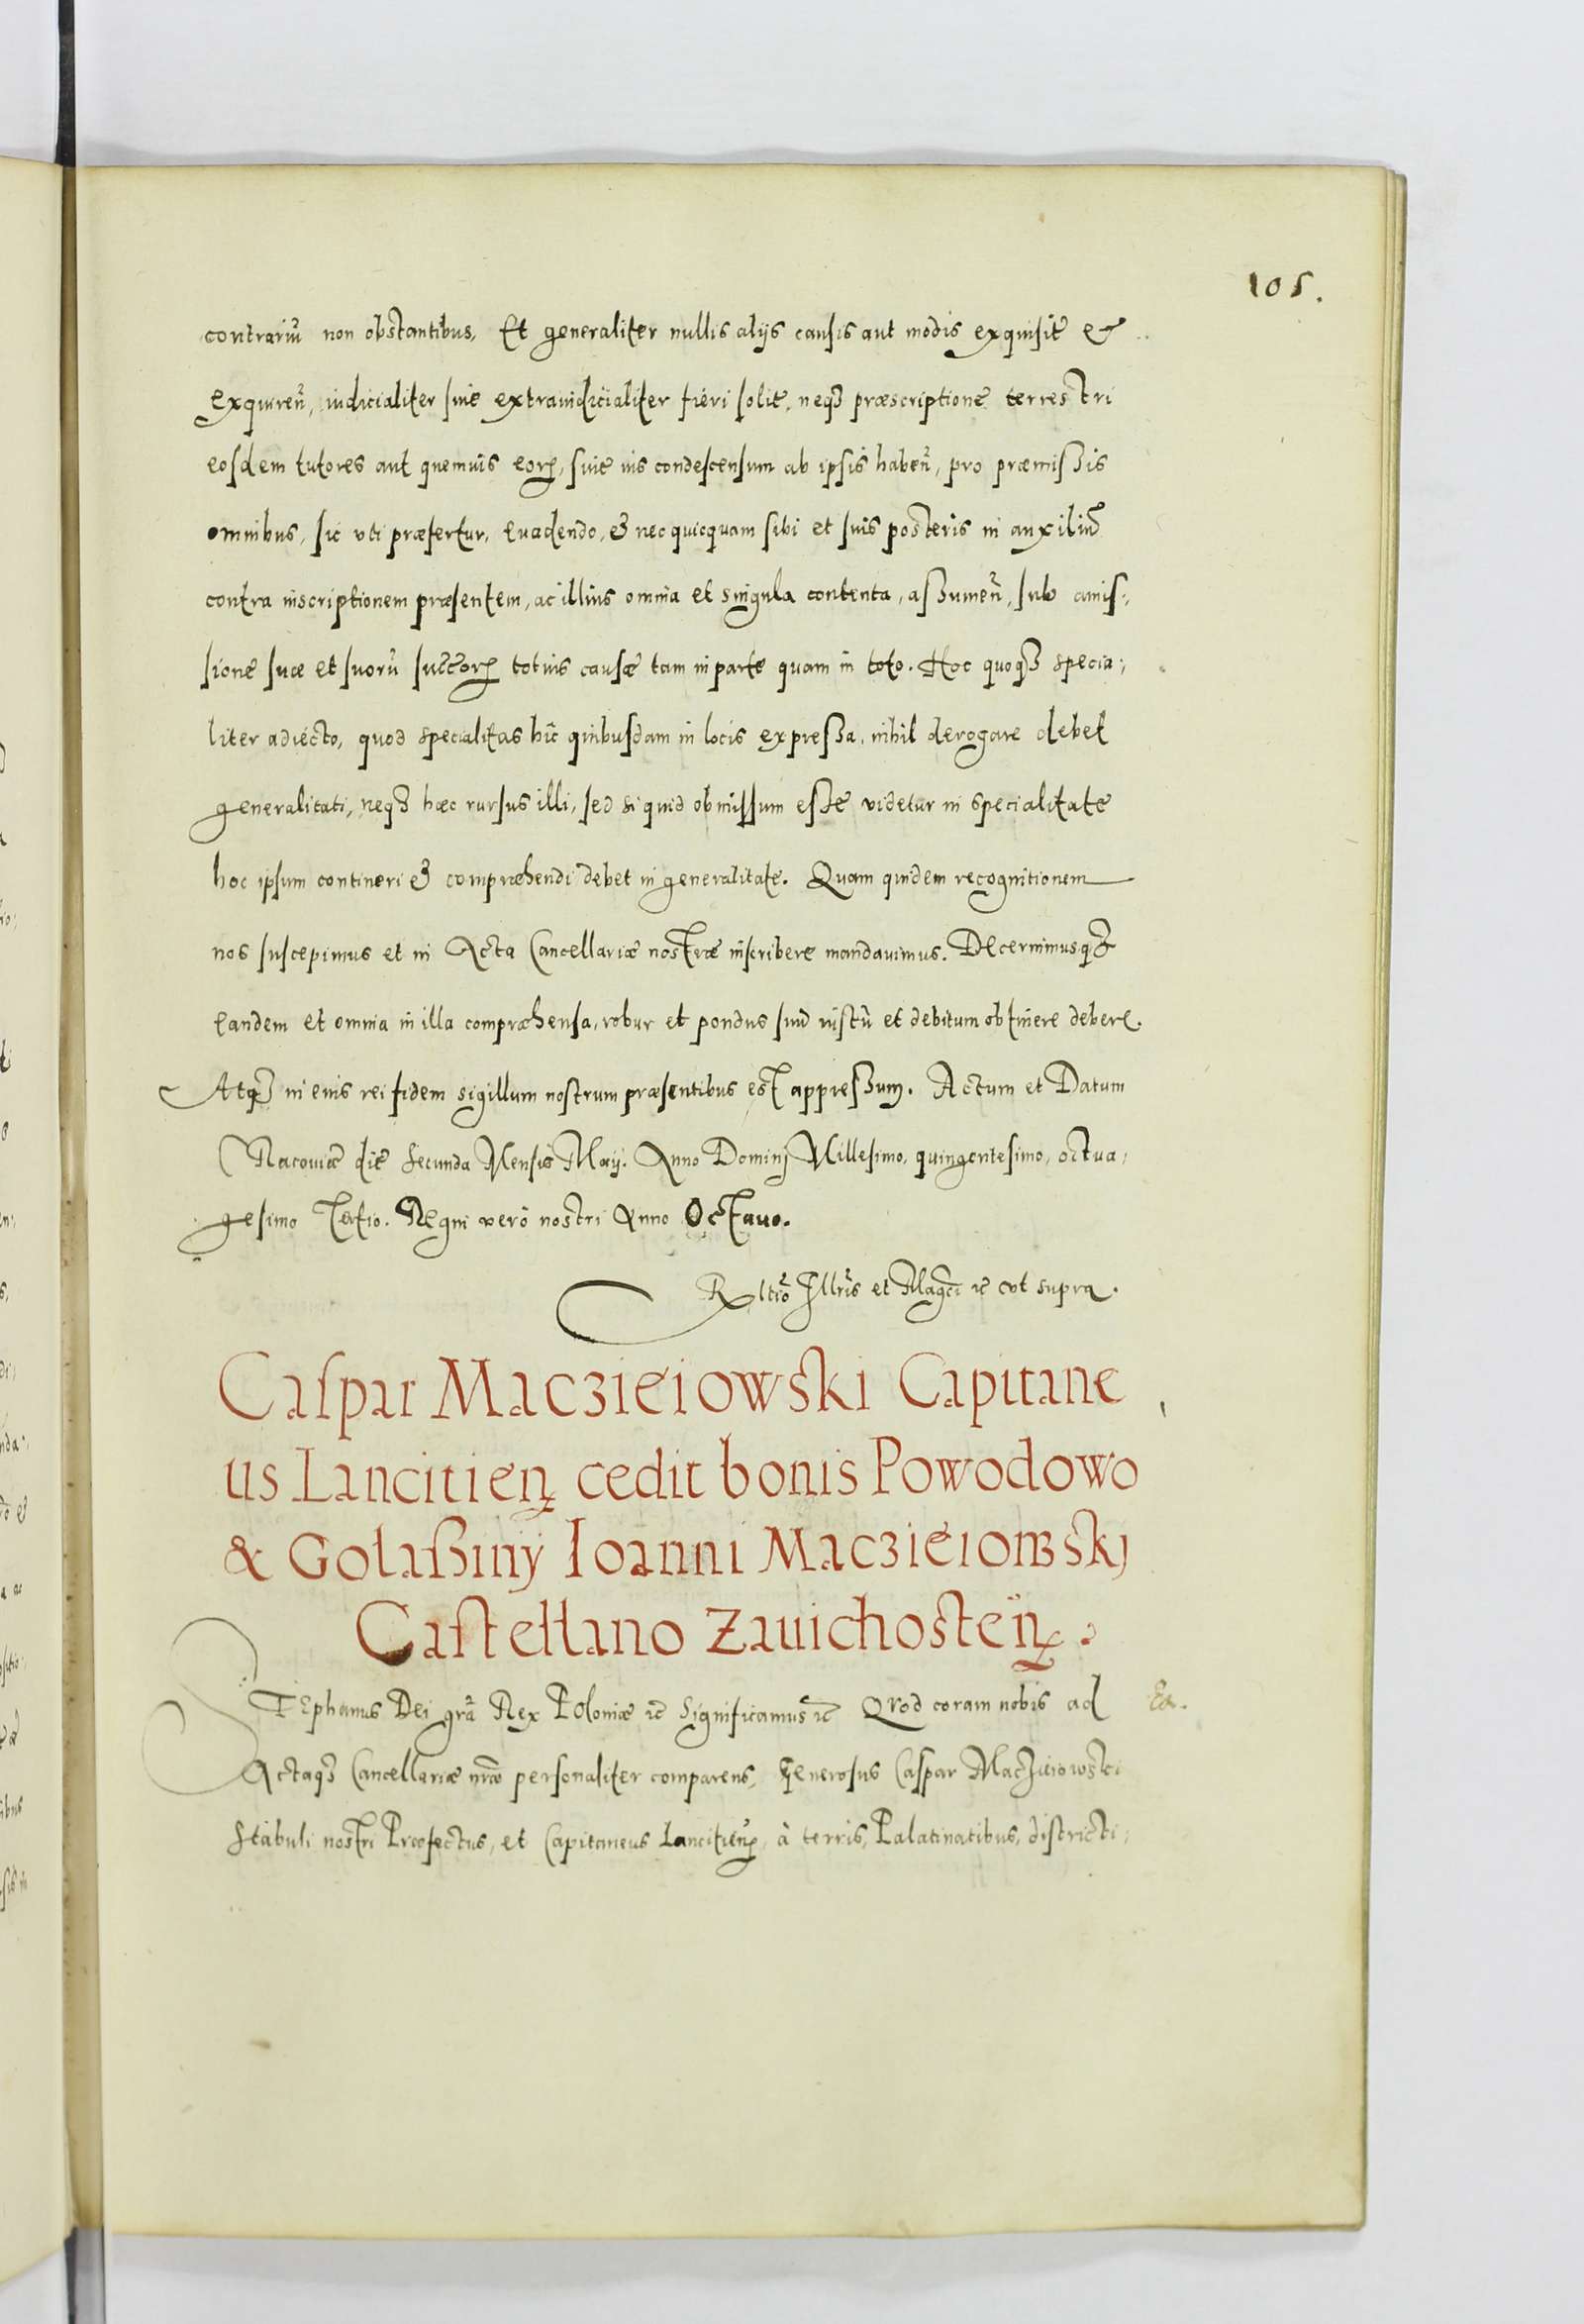 105.
contrariũ non obstantibus, Et generaliter nullis alijs causis aut modis exquisit̃ et
exquireñ, iudicialiter siue extraiudicialiter fieri solit̃, neqꝫ præscriptione terrestri
eosdem tutores aut quemuis eorꝝ, siue ius condescensum ab ipsis habeñ, pro præmißis
omnibus, sic vti præfertur, euadendo, & nec quicquam sibi et suis posteris in auxiliũ
contra inscriptionem præsentem, ac illius omnia et singula contenta, aßumeñ, sub amis:,
sione suæ et suorũ succorꝝ totius causæ tam in parte quam in toto. Hoc quoqꝫ specia:,
liter adiecto, quod specialitas hic quibusdam in locis expreßa, nihil derogare debet
generalitati, neqꝫ hæc rursus illi, sed si quid obmissum esse videtur in specialitate
hoc ipsum contineri & compræhendi debet in generalitate. Quam quidem recognitionem
nos suscepimus et in Acta Cancellariæ nostræ inscribere mandauimus. Decernimusqꝫ
eandem et omnia in illa compræhensa, robur et pondus suũ iustũ et debitum obtinere debere.
Atqꝫ in eius rei fidem sigillum nostrum præsentibus est appreßum. Actum et Datum
Racouiæ die secunda Mensis Maij. Anno Dominj Millesimo, quingentesimo, octua,
gesimo Tertio. Regni vero nostri Anno Octauo.
Rltiõ Illris et Magci ꝛc vt supra.
Caspar Maczieiowski Capitane
us Lancitieñ cedit bonis Powodowo
& Golaßiny Ioanni Maczieiowskj
Castellano Zauichosteñ.
STephanus Dei grã Rex Poloniæ ꝛc Significamus ꝛc Quod coram nobis ad
Ea.
Actaqꝫ Cancellariæ nræ personaliter comparens, Generosus Caspar Maczieiowski
Stabuli nostri Præfectus, et Capitaneus Lancitieñ, à terris, Palatinatibus, districti,